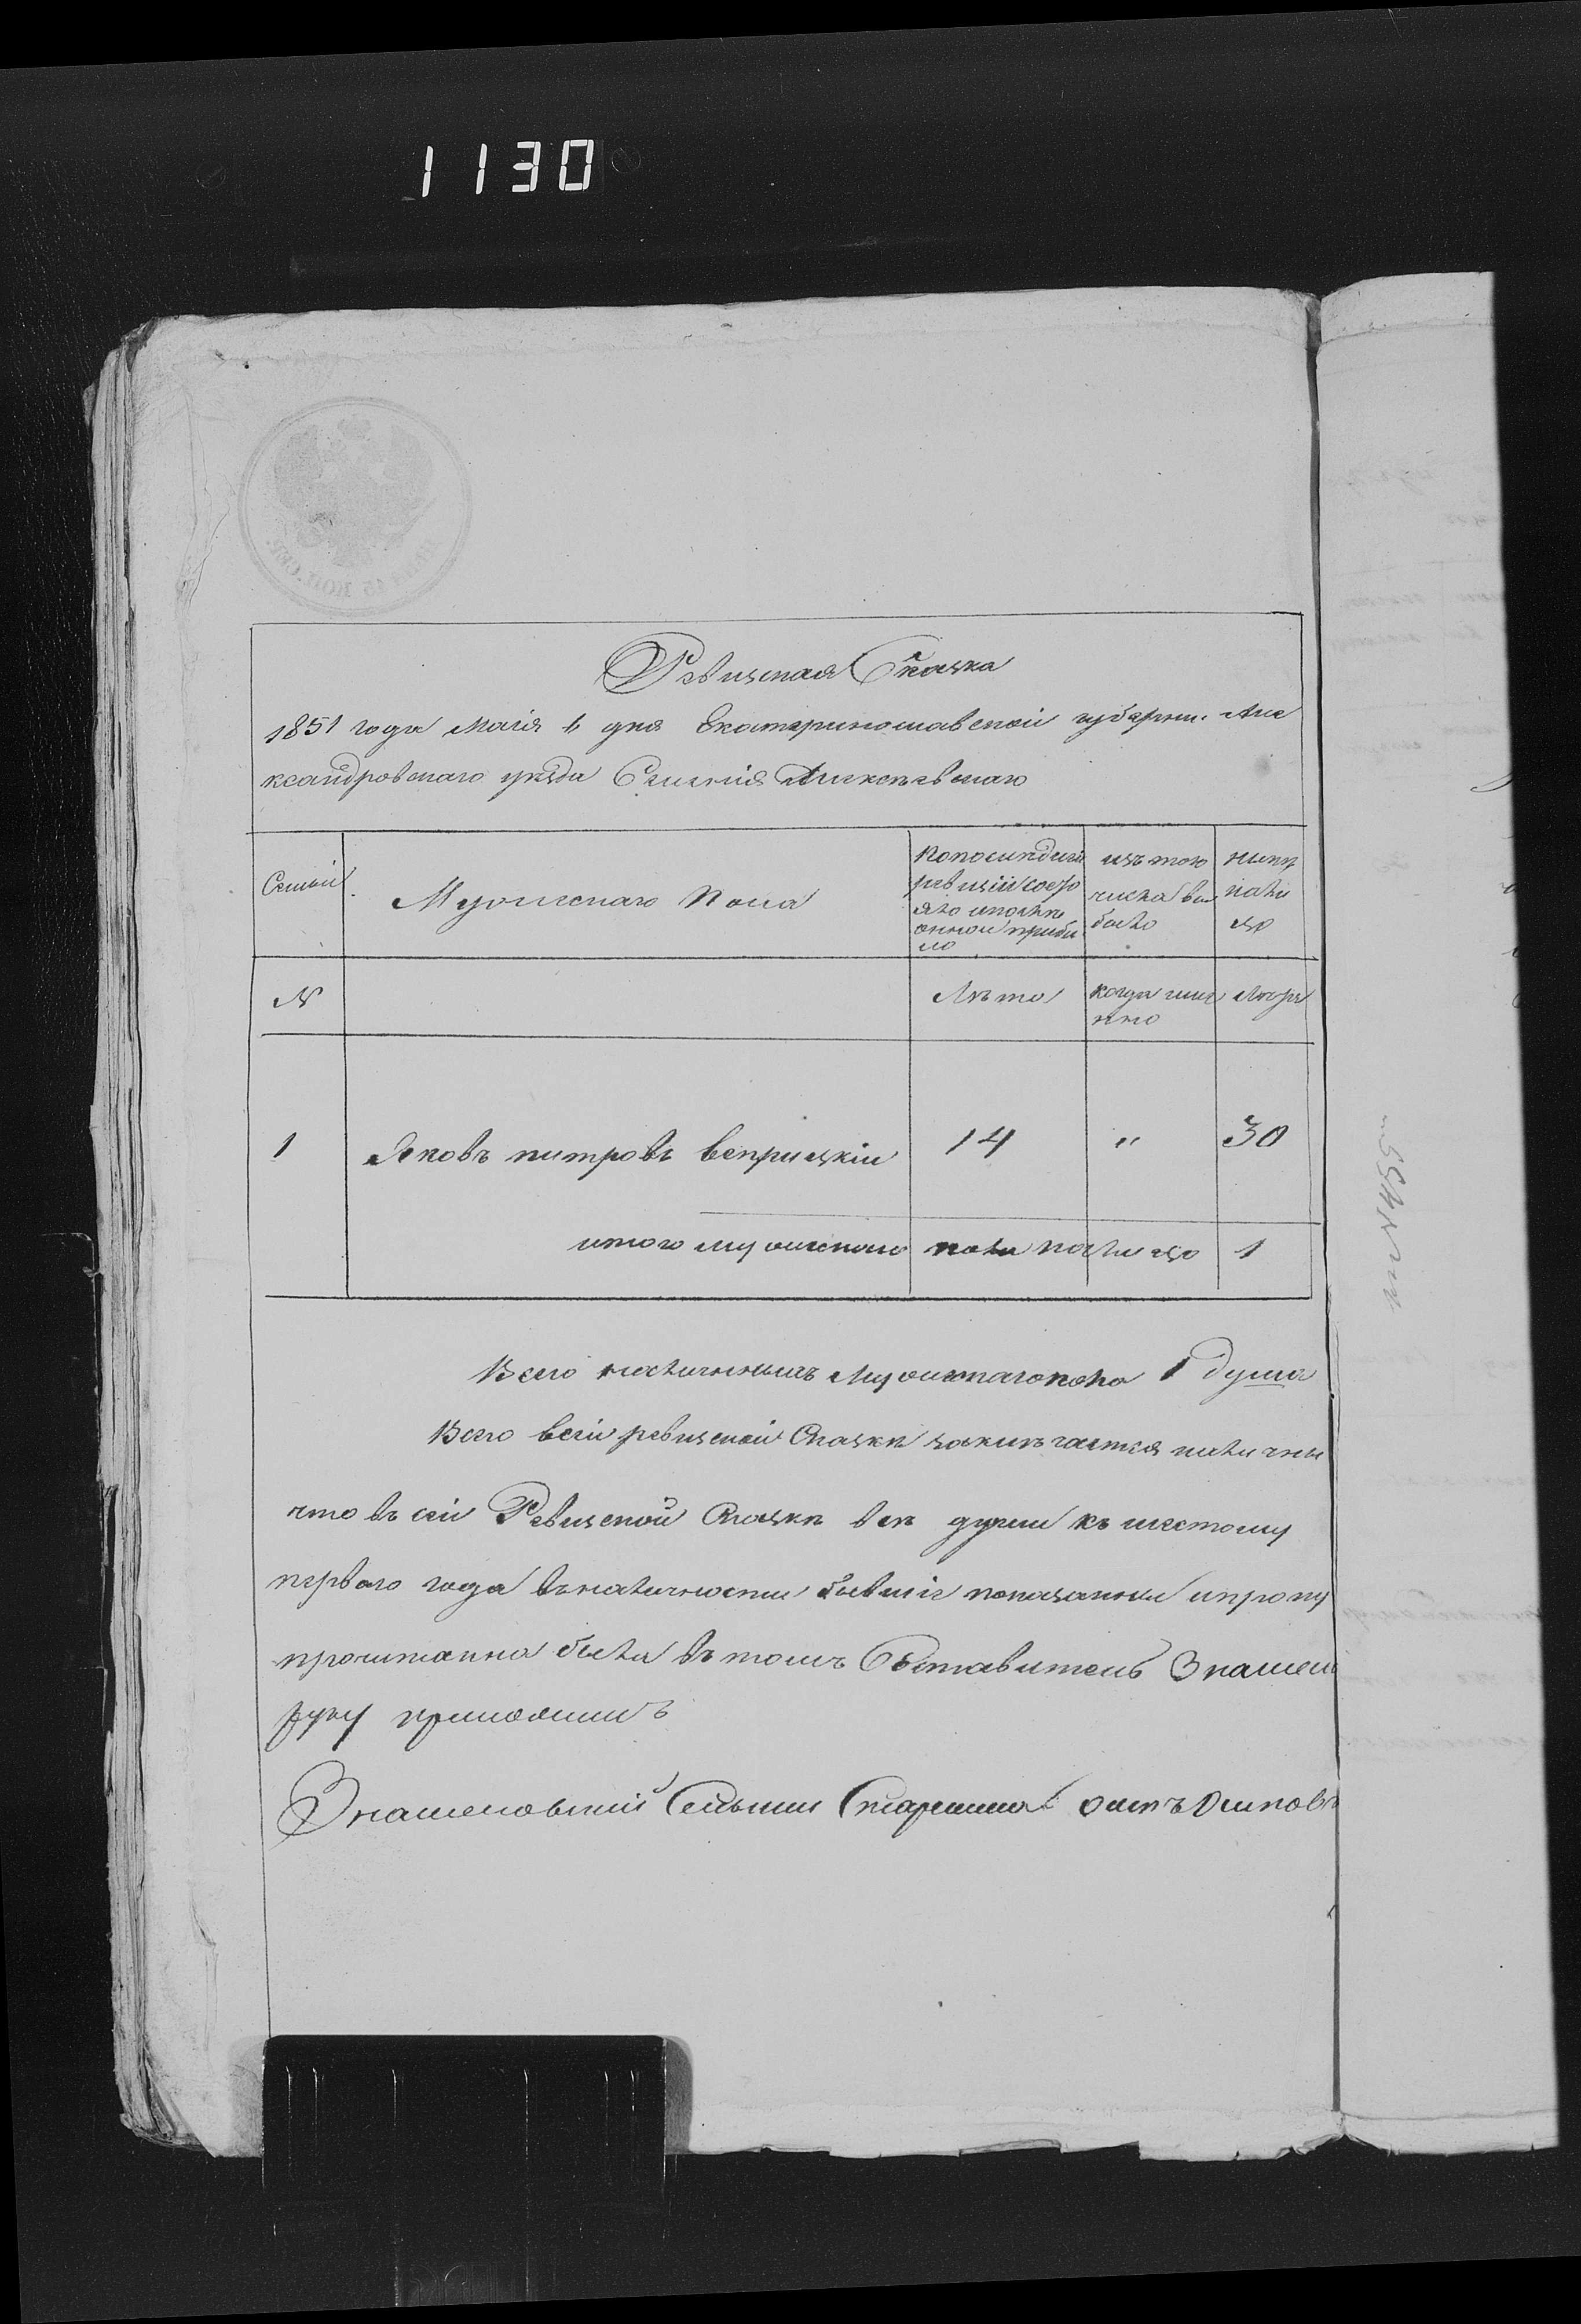 1130
Ревизская Сказка
1851 года Маія 4 дня Екатеринославской губерни. Але
ксандровскаго уезда Селенія Алексѣевскаго
Семьи
Мужескаго Пола
Попоследней
ревизіи состо
яло и после
оннои прибы
ло
изъ того
числа вы
было
ныне
нали
цо
№
Лѣта
когда име
нно
Лета
1
Яковъ питровъ веприцкій
14
"
30
итого мужескаго пола на лицо 1
Всего наличныхъ Мужескаго пола 1 душа
Всего всей ревизской Сказки заключается наличны
что въ сей Ревизской Сказке всѣ души къ шестому
первого года въ наличности бывшіе показанны и пропу
прочитанна была въ томъ Составитель Знамен
руку приложилъ
Знаменовский Сельский Старшина Осипъ Осиповъ